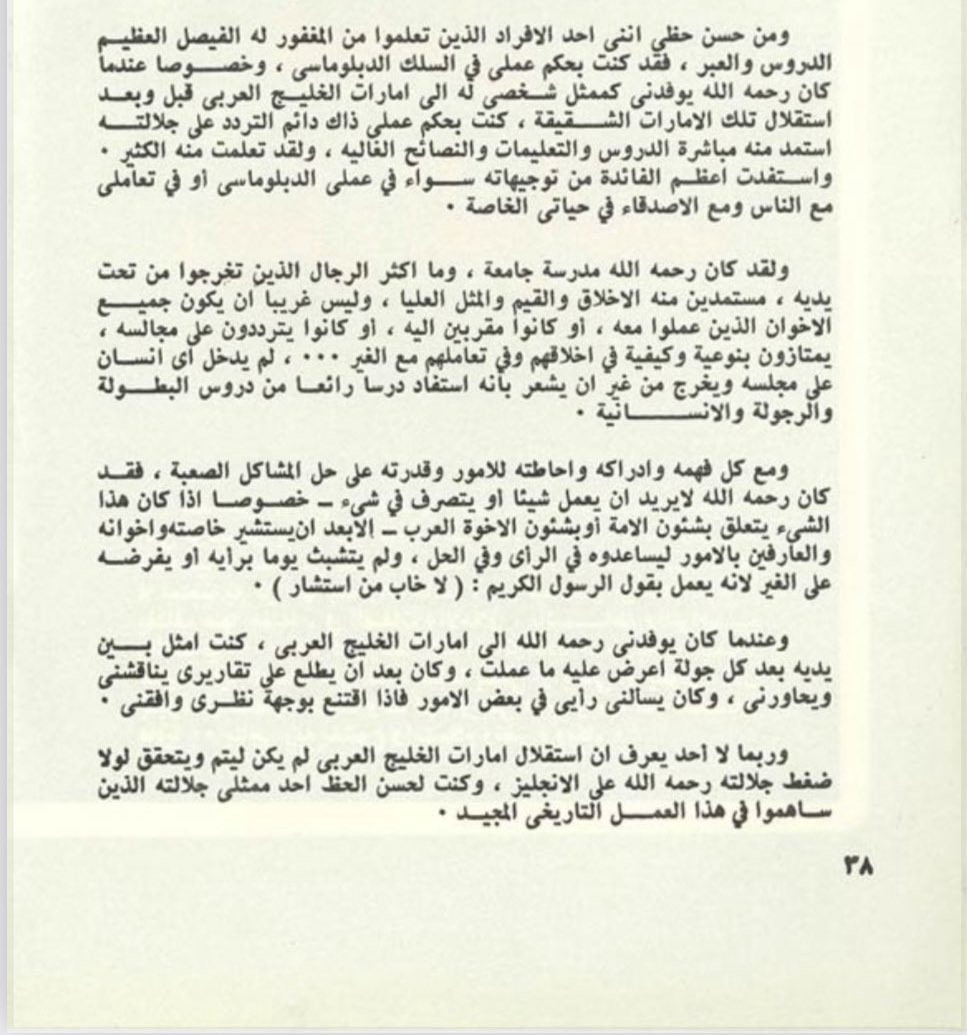 ومن حسن حظي اننى احد الافراد الذين تعلموا من المغفور له الفيصل العظيم
الدروس والعبر ، فقد كنت بحكم عملى في السلك الدبلوماسى ، وخصوصا عندما
كان رحمه الله يوفدنى كممثل شخصى له الى امارات الخليج العربى قبل وبعد
استقلال تلك الامارات الشقيقة ، كنت بحكم عملى ذاك دائم التردد على جلالته
استمد منه مباشرة الدروس والتعليمات والنصائح الغاليه ، ولقد تعلمت منه الكثير ٠
واستفدت اعظم الفائدة من توجيهاته سواء في عملى الدبلوماسى أو في تعاملى
مع الناس ومع الاصدقاء في حياتى الخاصة ٠
ولقد كان رحمه الله مدرسة جامعة ، وما اكثر الرجال الذين تخرجوا من تحت
يديه ، مستمدين منه الاخلاق والقيم والمثل العليا ، وليس غريبا ان يكون جميع
الاخوان الذين عملوا معه ، أو كانوا مقربين اليه ، أو كانوا يترددون على مجالسه ،
يمتازون بنوعية وكيفية في اخلاقهم وفي تعاملهم مع الغير ٠٠٠ ، لم يدخل أى انسان
على مجلسه ويخرج من غير ان يشعر بأنه استفاد درسا رائعا من دروس البطولة
والرجولة والانسانية ٠
ومع كل فهمه وادراكه واحاطته للامور وقدرته على حل المشاكل الصعبة ، فقد
كان رحمه الله لايريد ان يعمل شيئا أو يتصرف في شىء ـ خصوصا اذا كان هذا
الشىء يتعلق بشئون الامة أوبشئون الاخوة العرب ـ الابعد ان يستشير خاصته واخوانه
والعارفين بالامور ليساعدوه في الرأى وفي الحل ، ولم يتشبث يوما برأيه أو يفرضه
على الغير لانه يعمل بقول الرسول الكريم : ( لا خاب من استشار ) ٠
وعندما كان يوفدنى رحمه الله الى امارات الخليج العربى ، كنت امثل بين
يديه بعد كل جولة اعرض عليه ما عملت ، وكان بعد ان يطلع على تقاريرى يناقشنى
ويحاورنى ، وكان يسألنى رأيى في بعض الامور فاذا اقتنع بوجهة نظرى وافقنى ٠
وربما لا أحد يعرف ان استقلال امارات الخليج العربى لم يكن ليتم ويتحقق لولا
ضغط جلالته رحمه الله على الانجليز ، وكنت لحسن الحظ احد ممثلى جلالته الذين
ساهموا في هذا العمل التاريخى المجيد ٠
٣٨